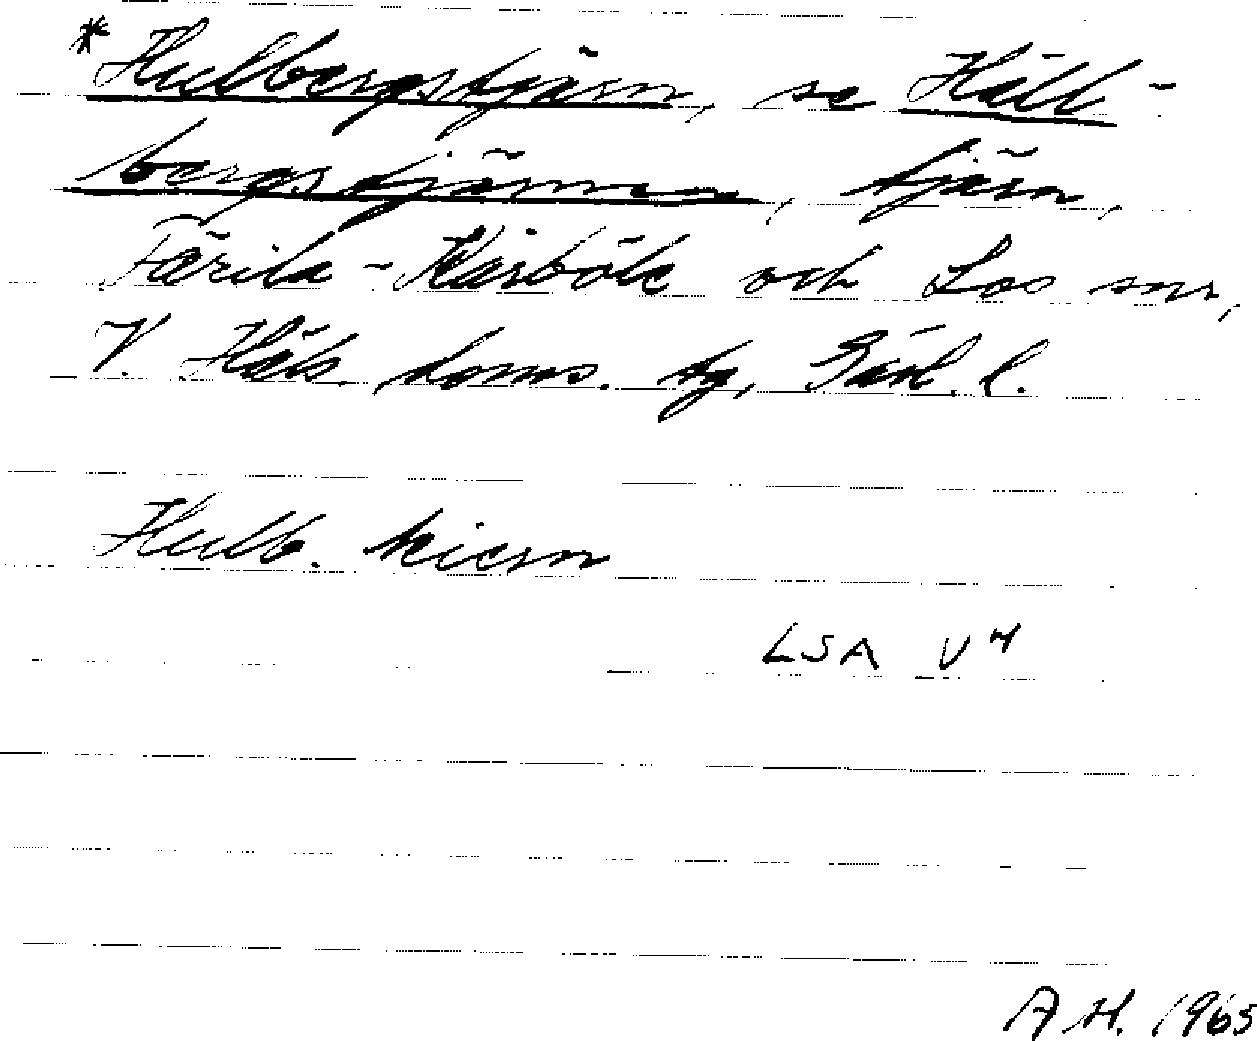 *Hulbergstjärn, se Häll-
bergstjärnen, tjärn,
Färila-Kårböle och Los snr,
V. Häls. doms. tg, Gävl. l.
Hulb. kiern
LSA V4
A.H. 1965